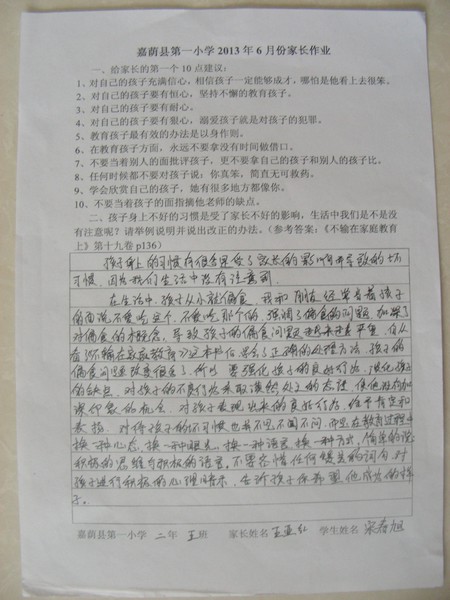 嘉荫县第一小学 2013 年 6 月份家长作业
一、给家长的第一个 10 点建议：
1、对自己的孩子充满信心，相信孩子一定能够成才，哪怕是他看上去很笨。
2、对自己的孩子要有恒心，坚持不懈的教育孩子。
3、对自己的孩子要有耐心。
4、对自己的孩子要有狠心，溺爱孩子就是对孩子的犯罪。
5、教育孩子最有效的办法是以身作则。
6、在教育孩子方面，永远不要拿没有时间做借口。
7、不要当着别人的面批评孩子，更不要拿自己的孩子和别人的孩子比。
8、任何时候都不要对孩子说：你真笨，简直无可救药。
9、学会欣赏自己的孩子，她有很多地方都像你。
10、不要当着孩子的面指摘他老师的缺点。
二、孩子身上不好的习惯是受了家长不好的影响，生活中我们是不是没
有注意呢？请举例说明并说出改正的办法。（参考答案：《不输在家庭教育
上》第十九卷 p136）
孩子身上的习惯有很多是受了家长的影响而导致的坏
习惯，因为我们生活中没有注意到
在生活中，孩子从小就偏食，我和朋友经常当着孩子
的面说不爱吃这个，不爱吃那个的，强调了偏食的问题，加深了
对偏食的概念，导致孩子的偏食问题越来越严重，自从
在《不输在家庭教育》这本书后学会了正确的处理方法，孩子的
偏食问题改变很多了，所以要强化孩子的良好行为，淡化孩子
的缺点，对孩子的不良行为采取漠然处之的态度，使他没有加
深印象的机会，对孩子表现出来的良好行为，给予肯定和
表扬，对待孩子的坏习惯也并不是不闻不问，而是在教育过程中
换一种心态，换一种眼光，换一种语言，换一种方式，
积极的思维与积极的语言，不要吝惜任何赞美的词句，对
孩子进行积极的心理暗示，告诉孩子你希望他成为的样
子。
嘉荫县第一小学 二年 五班 家长姓名 王亚红 学生姓名 宋春旭